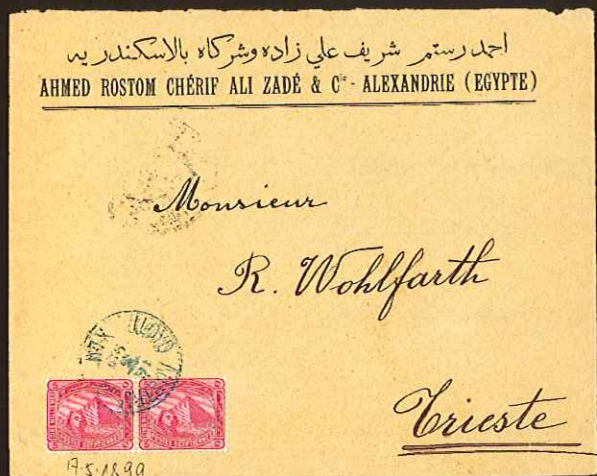 احمد رستم شريف علي زاده وشركاه بالاسكندريه
AHMED ROSTOM CHÉRIF ALI ZADÉ & Cie - ALEXANDRIE (EGYPTE)
Monsieur
R. Wohlfarth
Trieste
LLOYD
17.5.1899